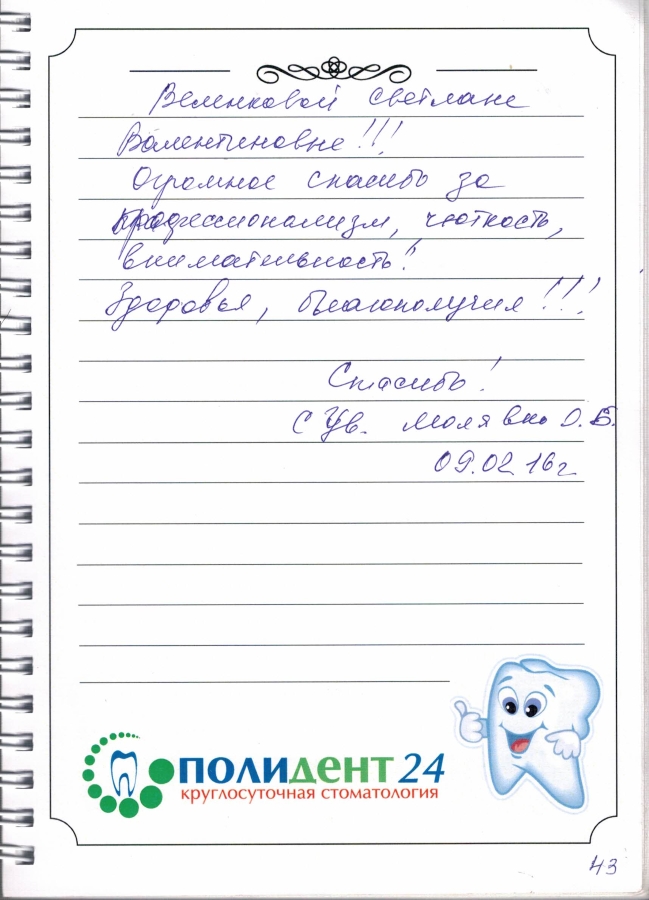 Веленковой Светлане
Валентиновне!!!
Огромное спасибо за
профессионализм, чёткость,
внимательность!
Здоровья, благополучия!!!
Спасибо!
С Ув. Молявко О.В.
09.02.16г
ПОЛИДЕНТ 24
КРУГЛОСУТОЧНАЯ СТОМАТОЛОГИЯ
43